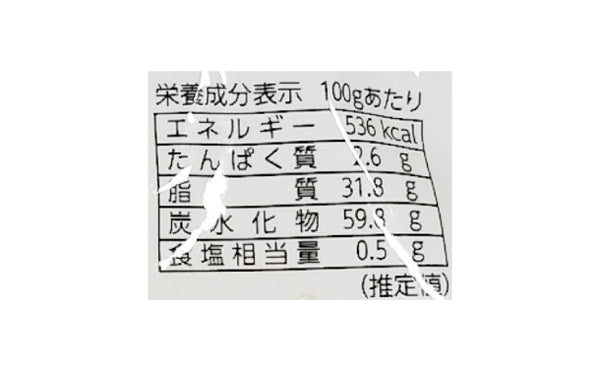 栄養成分表示 100gあたり
エネルギー 536 kcal
たんぱく質 2.6 g
脂質 31.8 g
炭水化物 59.8 g
食塩相当量 0.5 g
(推定値)